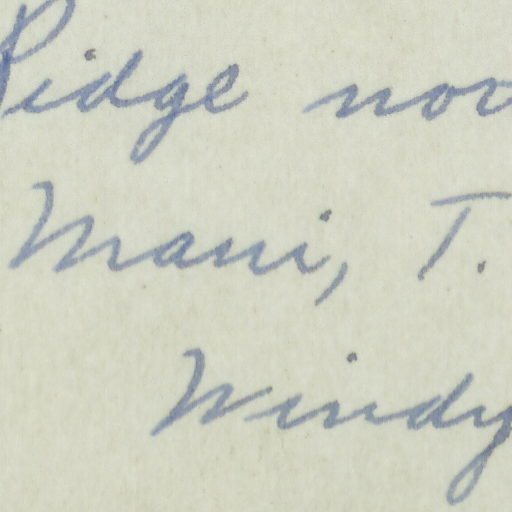 Ridge nor
Maui, T.
Windy